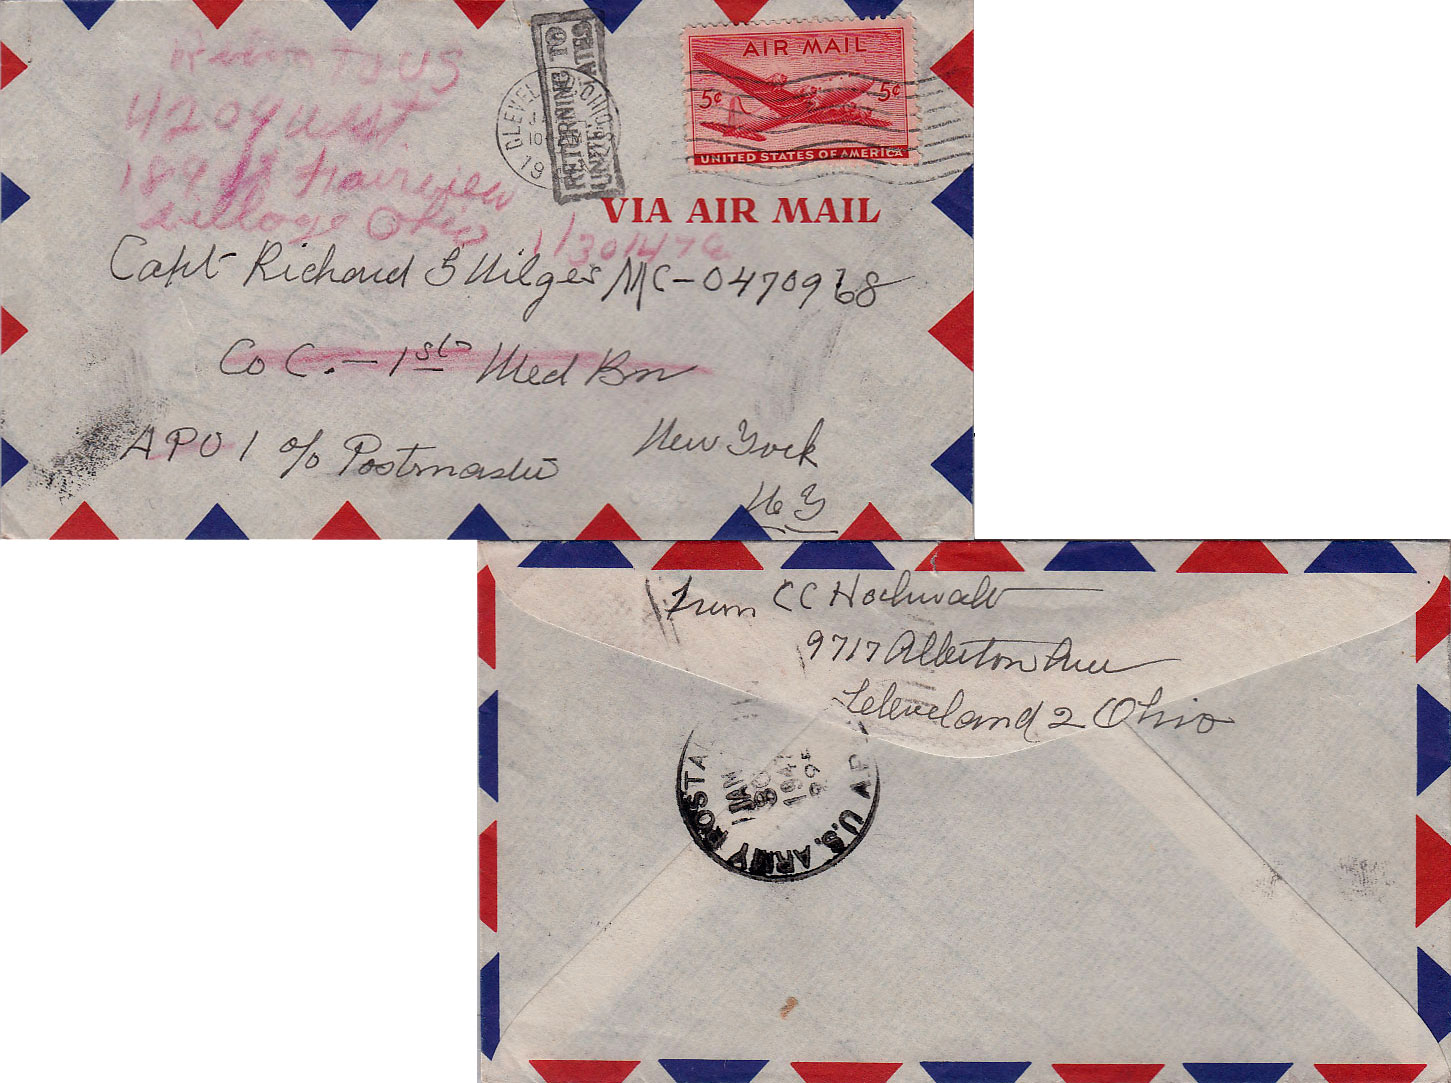 AIR MAIL
5¢ 5¢
UNITED STATES OF AMERICA
VIA AIR MAIL
RETURNING TO
UNITED STATES
CLEVELAND OHIO
19
Return to US
4209 West
189 St Fairview
Village Ohio 1/30/47
Capt Richard S Wilges MC-0470968
Co C. - 1st Med Bn
APO 1 c/o Postmaster New York
N Y
From CC Hochwalt
9717 Alberton Ave
Cleveland 2 Ohio
U.S. ARMY POSTAL
JAN
30
1947